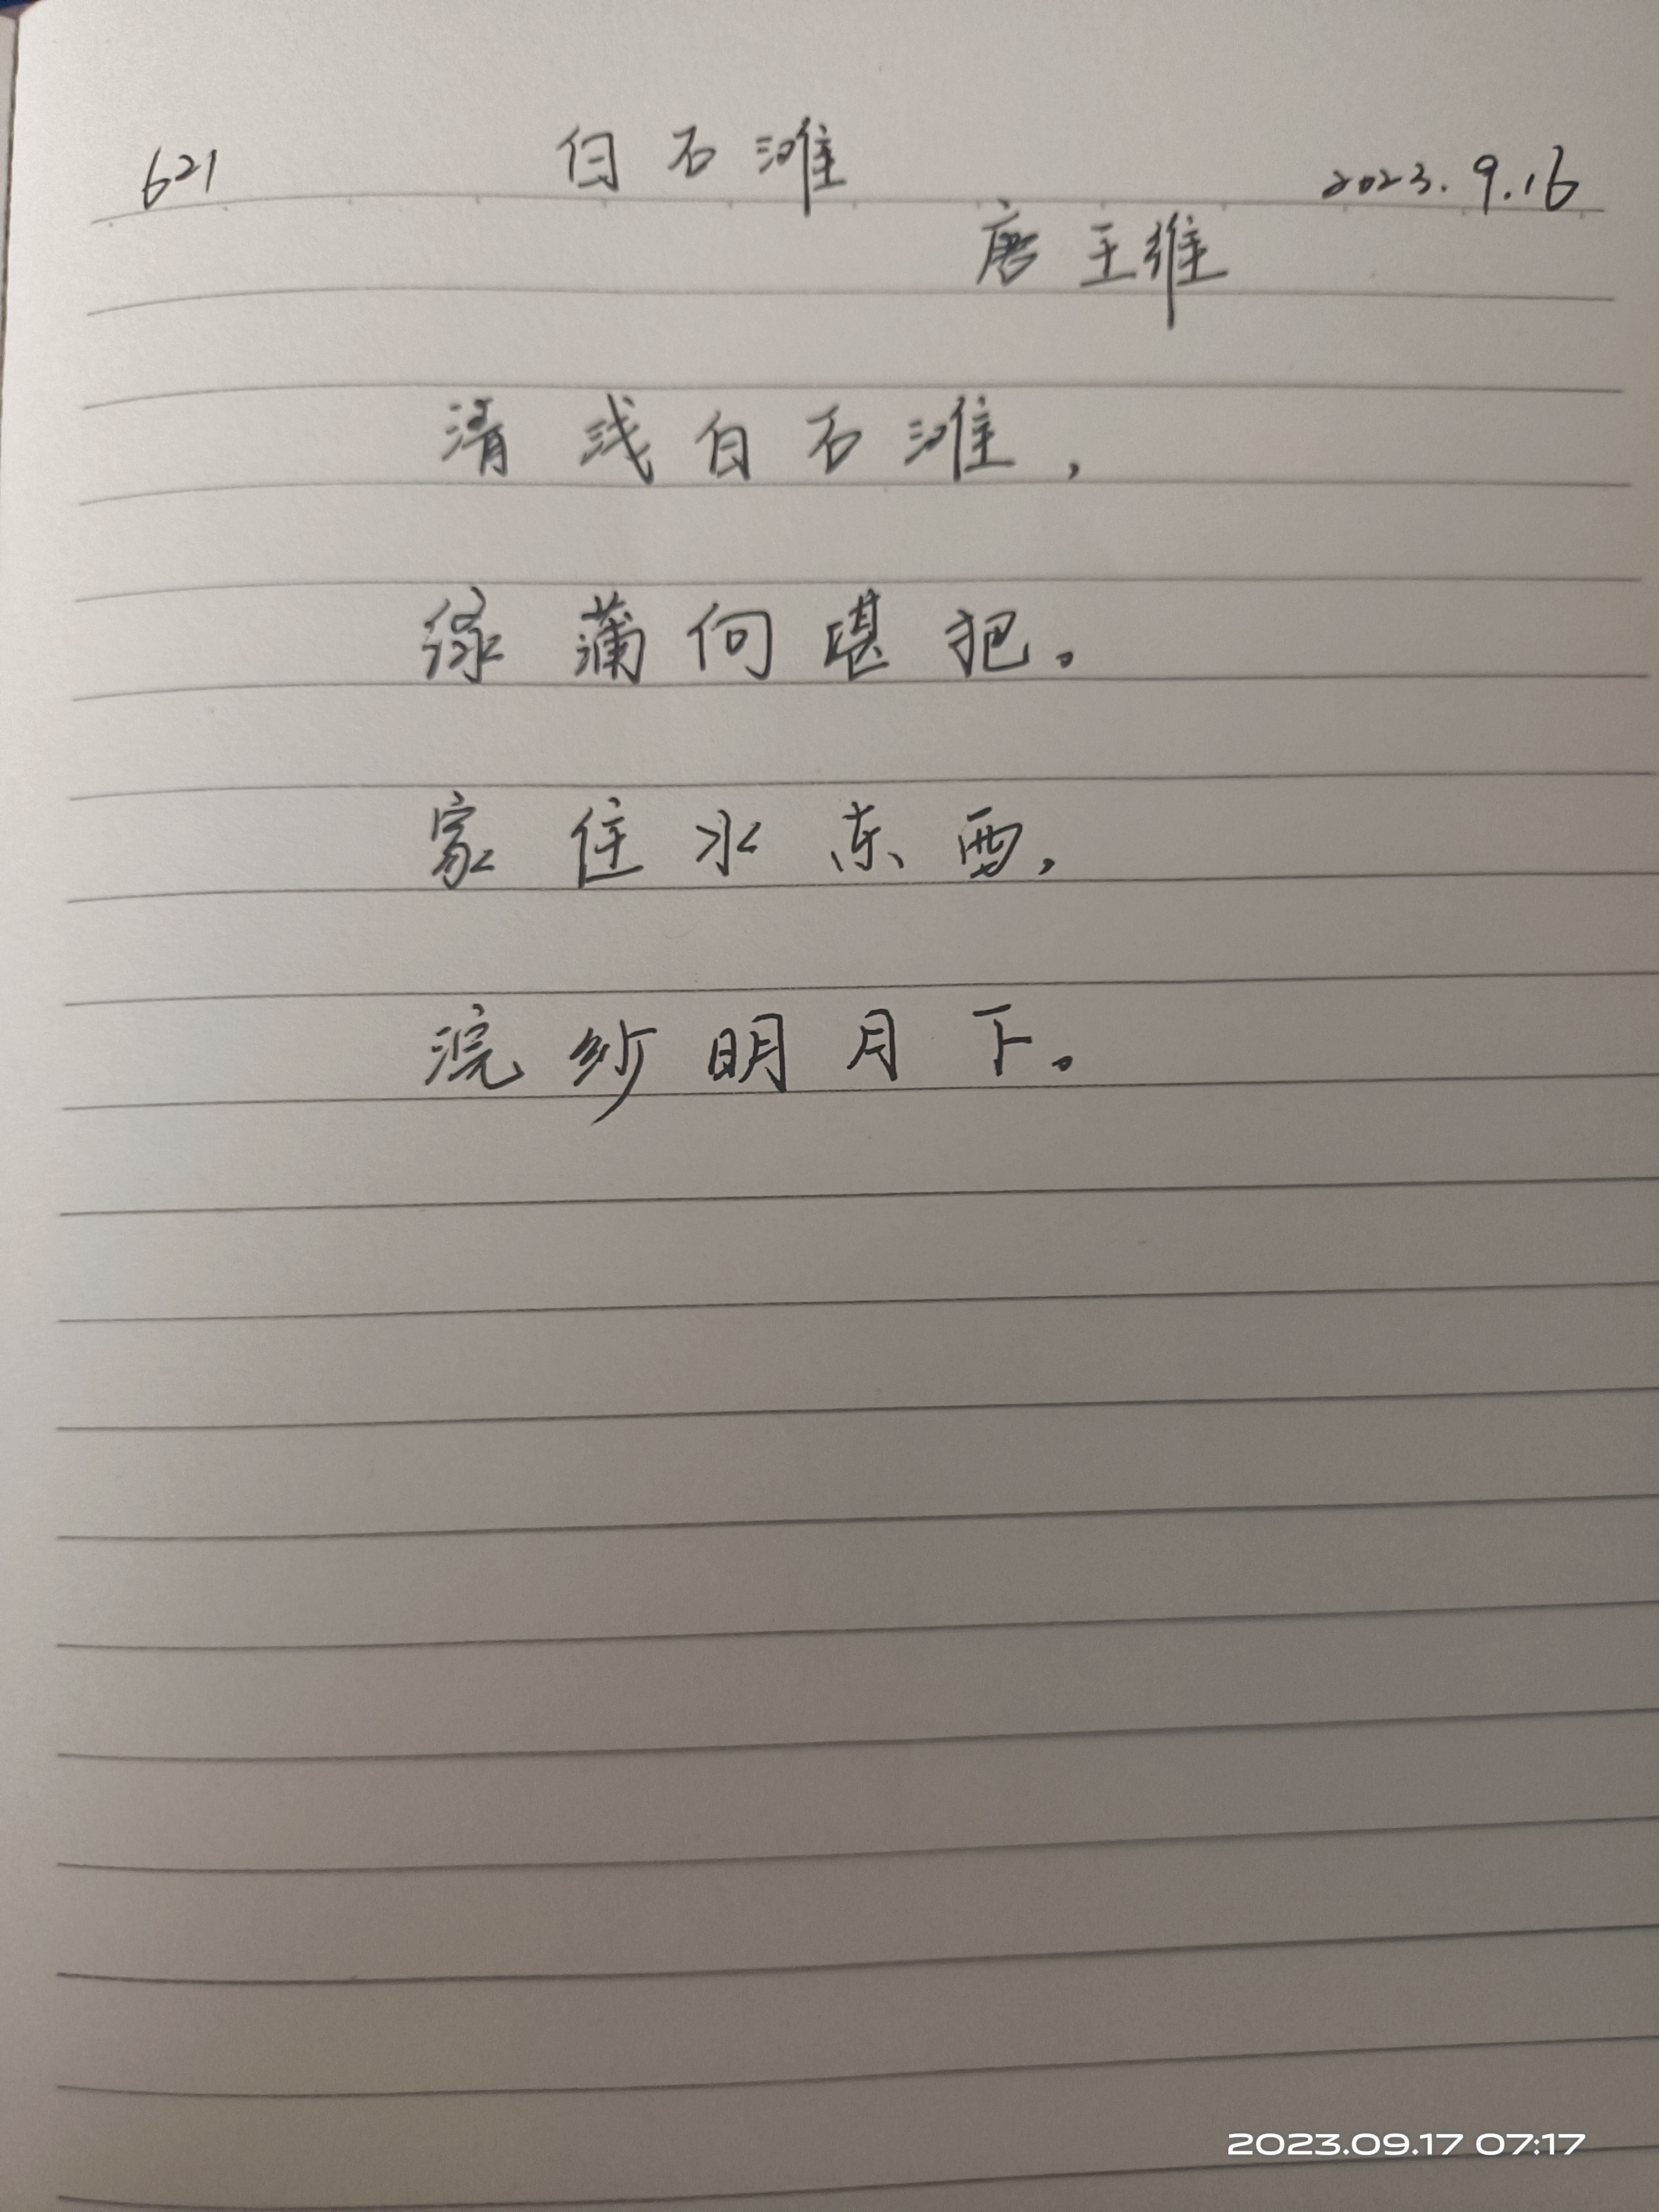 621 白石滩 2023.9.16
唐 王维
清浅白石滩，
绿蒲向堪把。
家住水东西，
浣纱明月下。
2023.09.17 07:17